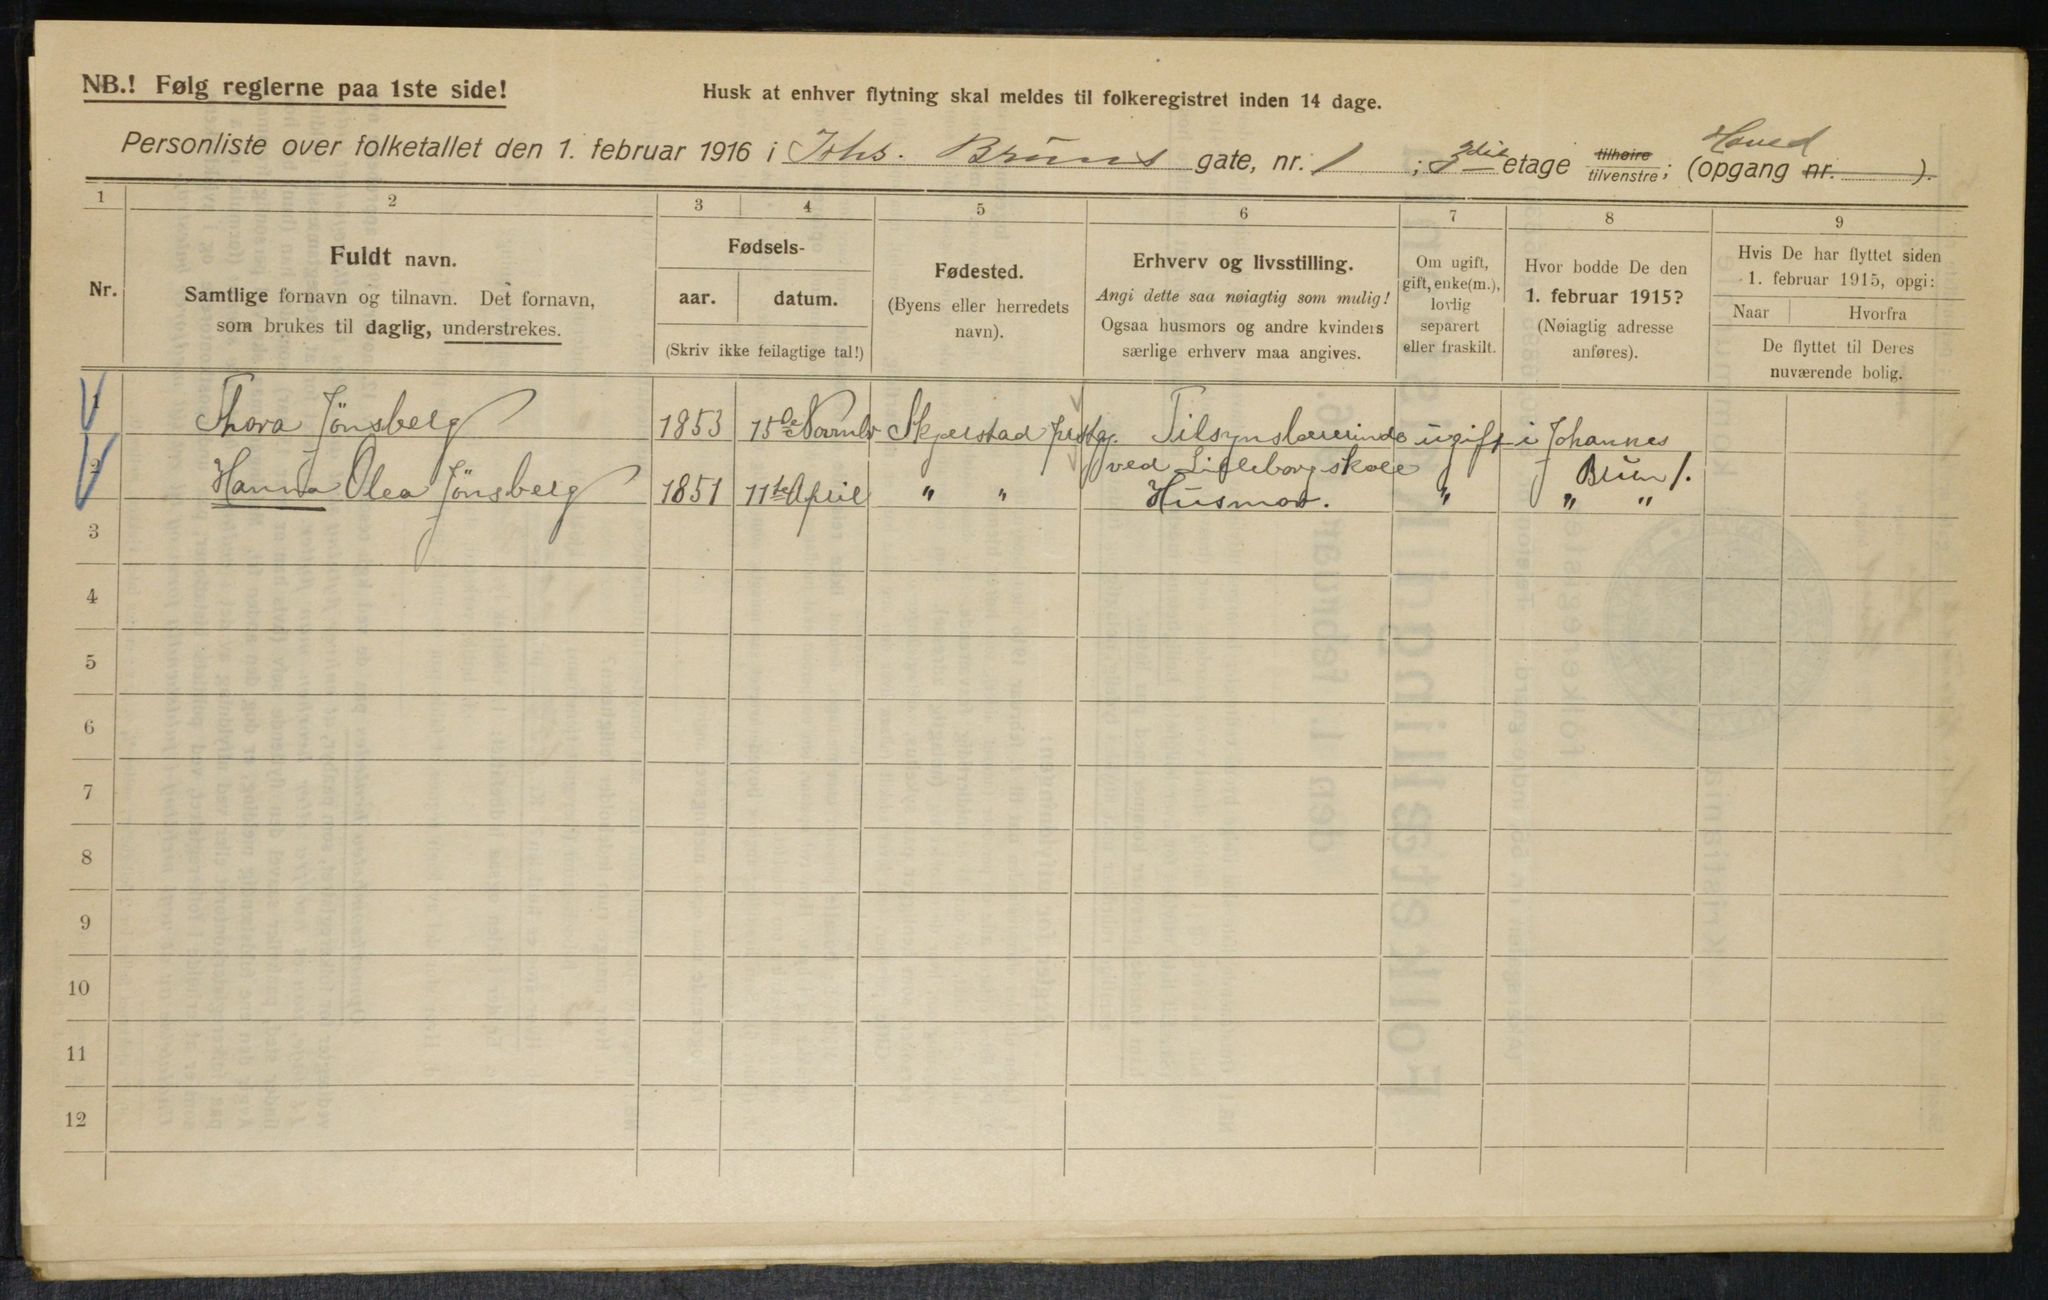 NB.! Følg reglerne paa 1ste side!
Husk at enhver flytning skal meldes til folkeregistret inden 14 dage.
Personliste over folketallet den 1. februar 1916 i Johs. Bruns gate, nr. 1 ; 3die etage tilhøire tilvenstre; (opgang nr. ). Hoved
1 2 3 4 5 6 7 8 9
Nr.
Fuldt navn.
Samtlige fornavn og tilnavn. Det fornavn,
som brukes til daglig, understrekes.
Fødsels-
aar. datum.
(Skriv ikke feilagtige tal!)
Fødested.
(Byens eller herredets
navn).
Erhverv og livsstilling.
Angi dette saa nøiagtig som mulig!
Ogsaa husmors og andre kvinders
særlige erhverv maa angives.
Om ugift,
gift, enke(m.),
lovlig
separert
eller fraskilt.
Hvor bodde De den
1. februar 1915?
(Nøiagtig adresse
anføres).
Hvis De har flyttet siden
1. februar 1915, opgi:
Naar Hvorfra
De flyttet til Deres
nuværende bolig.
1 Thora Jönsberg 1853 15de Novmbr Skjerstad prstg. Tilsynslærerinde ugift i Johannes
ved Lilleborg skole Brun 1.
2 Hanna Olea Jönsberg 1851 11te April " " Husmor. " " "
3
4
5
6
7
8
9
10
11
12